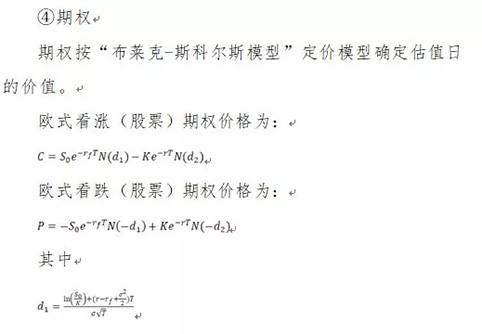 ④期权
期权按“布莱克-斯科尔斯模型”定价模型确定估值日
的价值。
欧式看涨（股票）期权价格为：
C = S₀e^{-r_f T}N(d₁) − Ke^{-rT}N(d₂)
欧式看跌（股票）期权价格为：
P = −S₀e^{-r_f T}N(−d₁) + Ke^{-rT}N(−d₂)
其中
d₁ = \frac{\ln(\frac{S_0}{K})+(r-r_f+\frac{σ^2}{2})T}{σ\sqrt{T}}